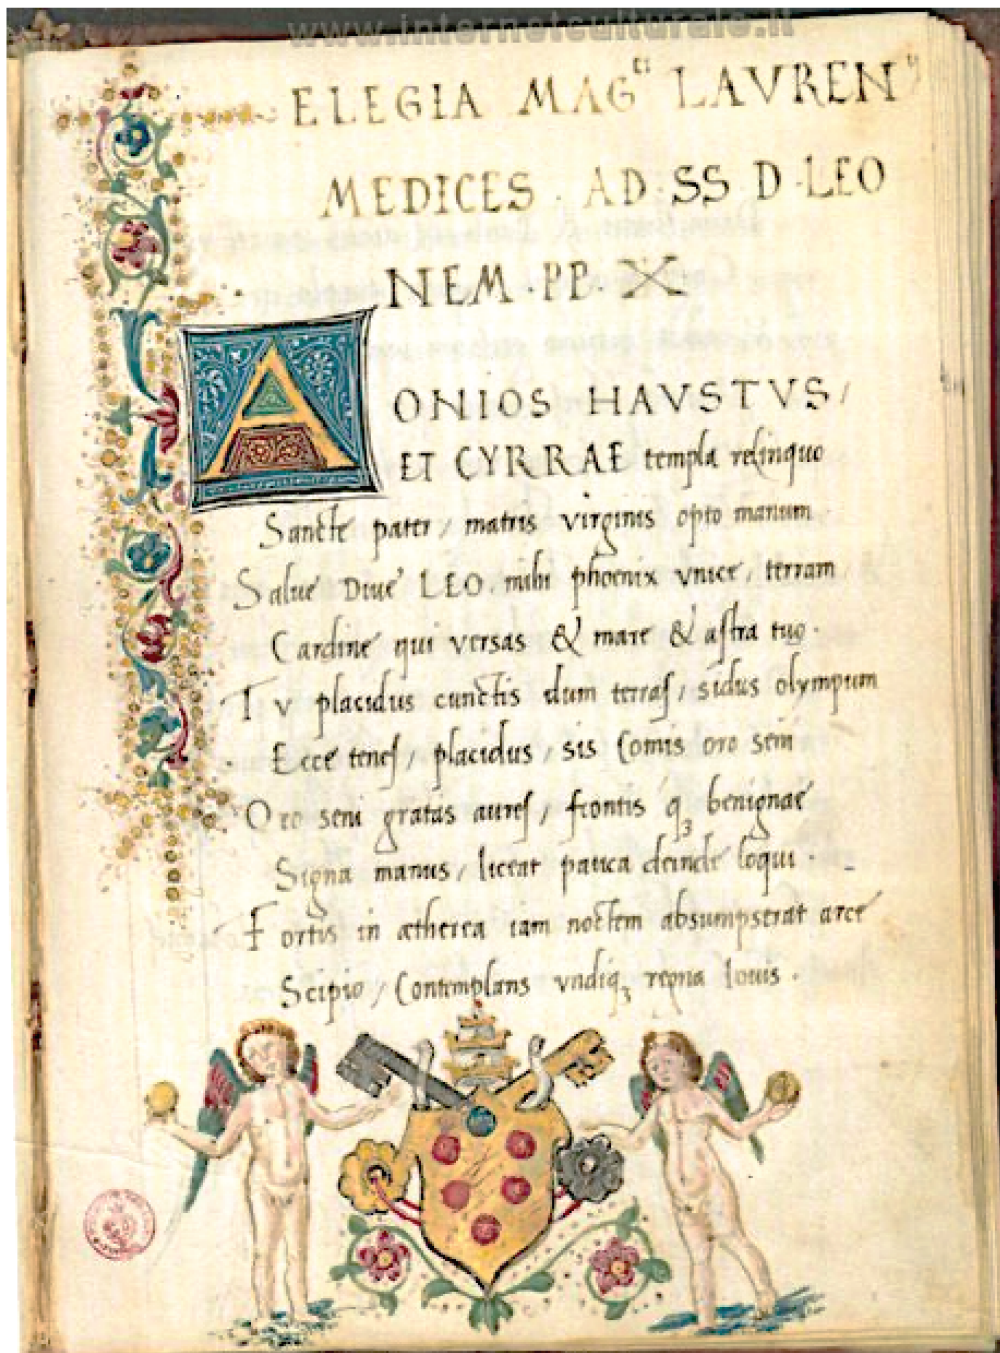 www.internetculturale.it
ELEGIA MAG^ci LAVREN^ii
MEDICES · AD · SS D · LEO
NEM · PP · X
AONIOS HAVSTVS /
ET CYRRAE templa relinquo
Sancte pater / matris virginis opto manum
Salue Diue LEO · mihi phoenix vnice / terram
Cardine qui versas & mare & astra tuo ·
Tv placidus cunctis dum terras / sidus olympum
Ecce tenes / placidus / sis Comis oro seni
Oro seni gratas aures / frontis qꝫ benignae
Signa manus / liceat pauca deinde loqui ·
Fortis in ætherea iam noctem absumpserat arce
Scipio / Contemplans vndiqꝫ regna Iouis ·